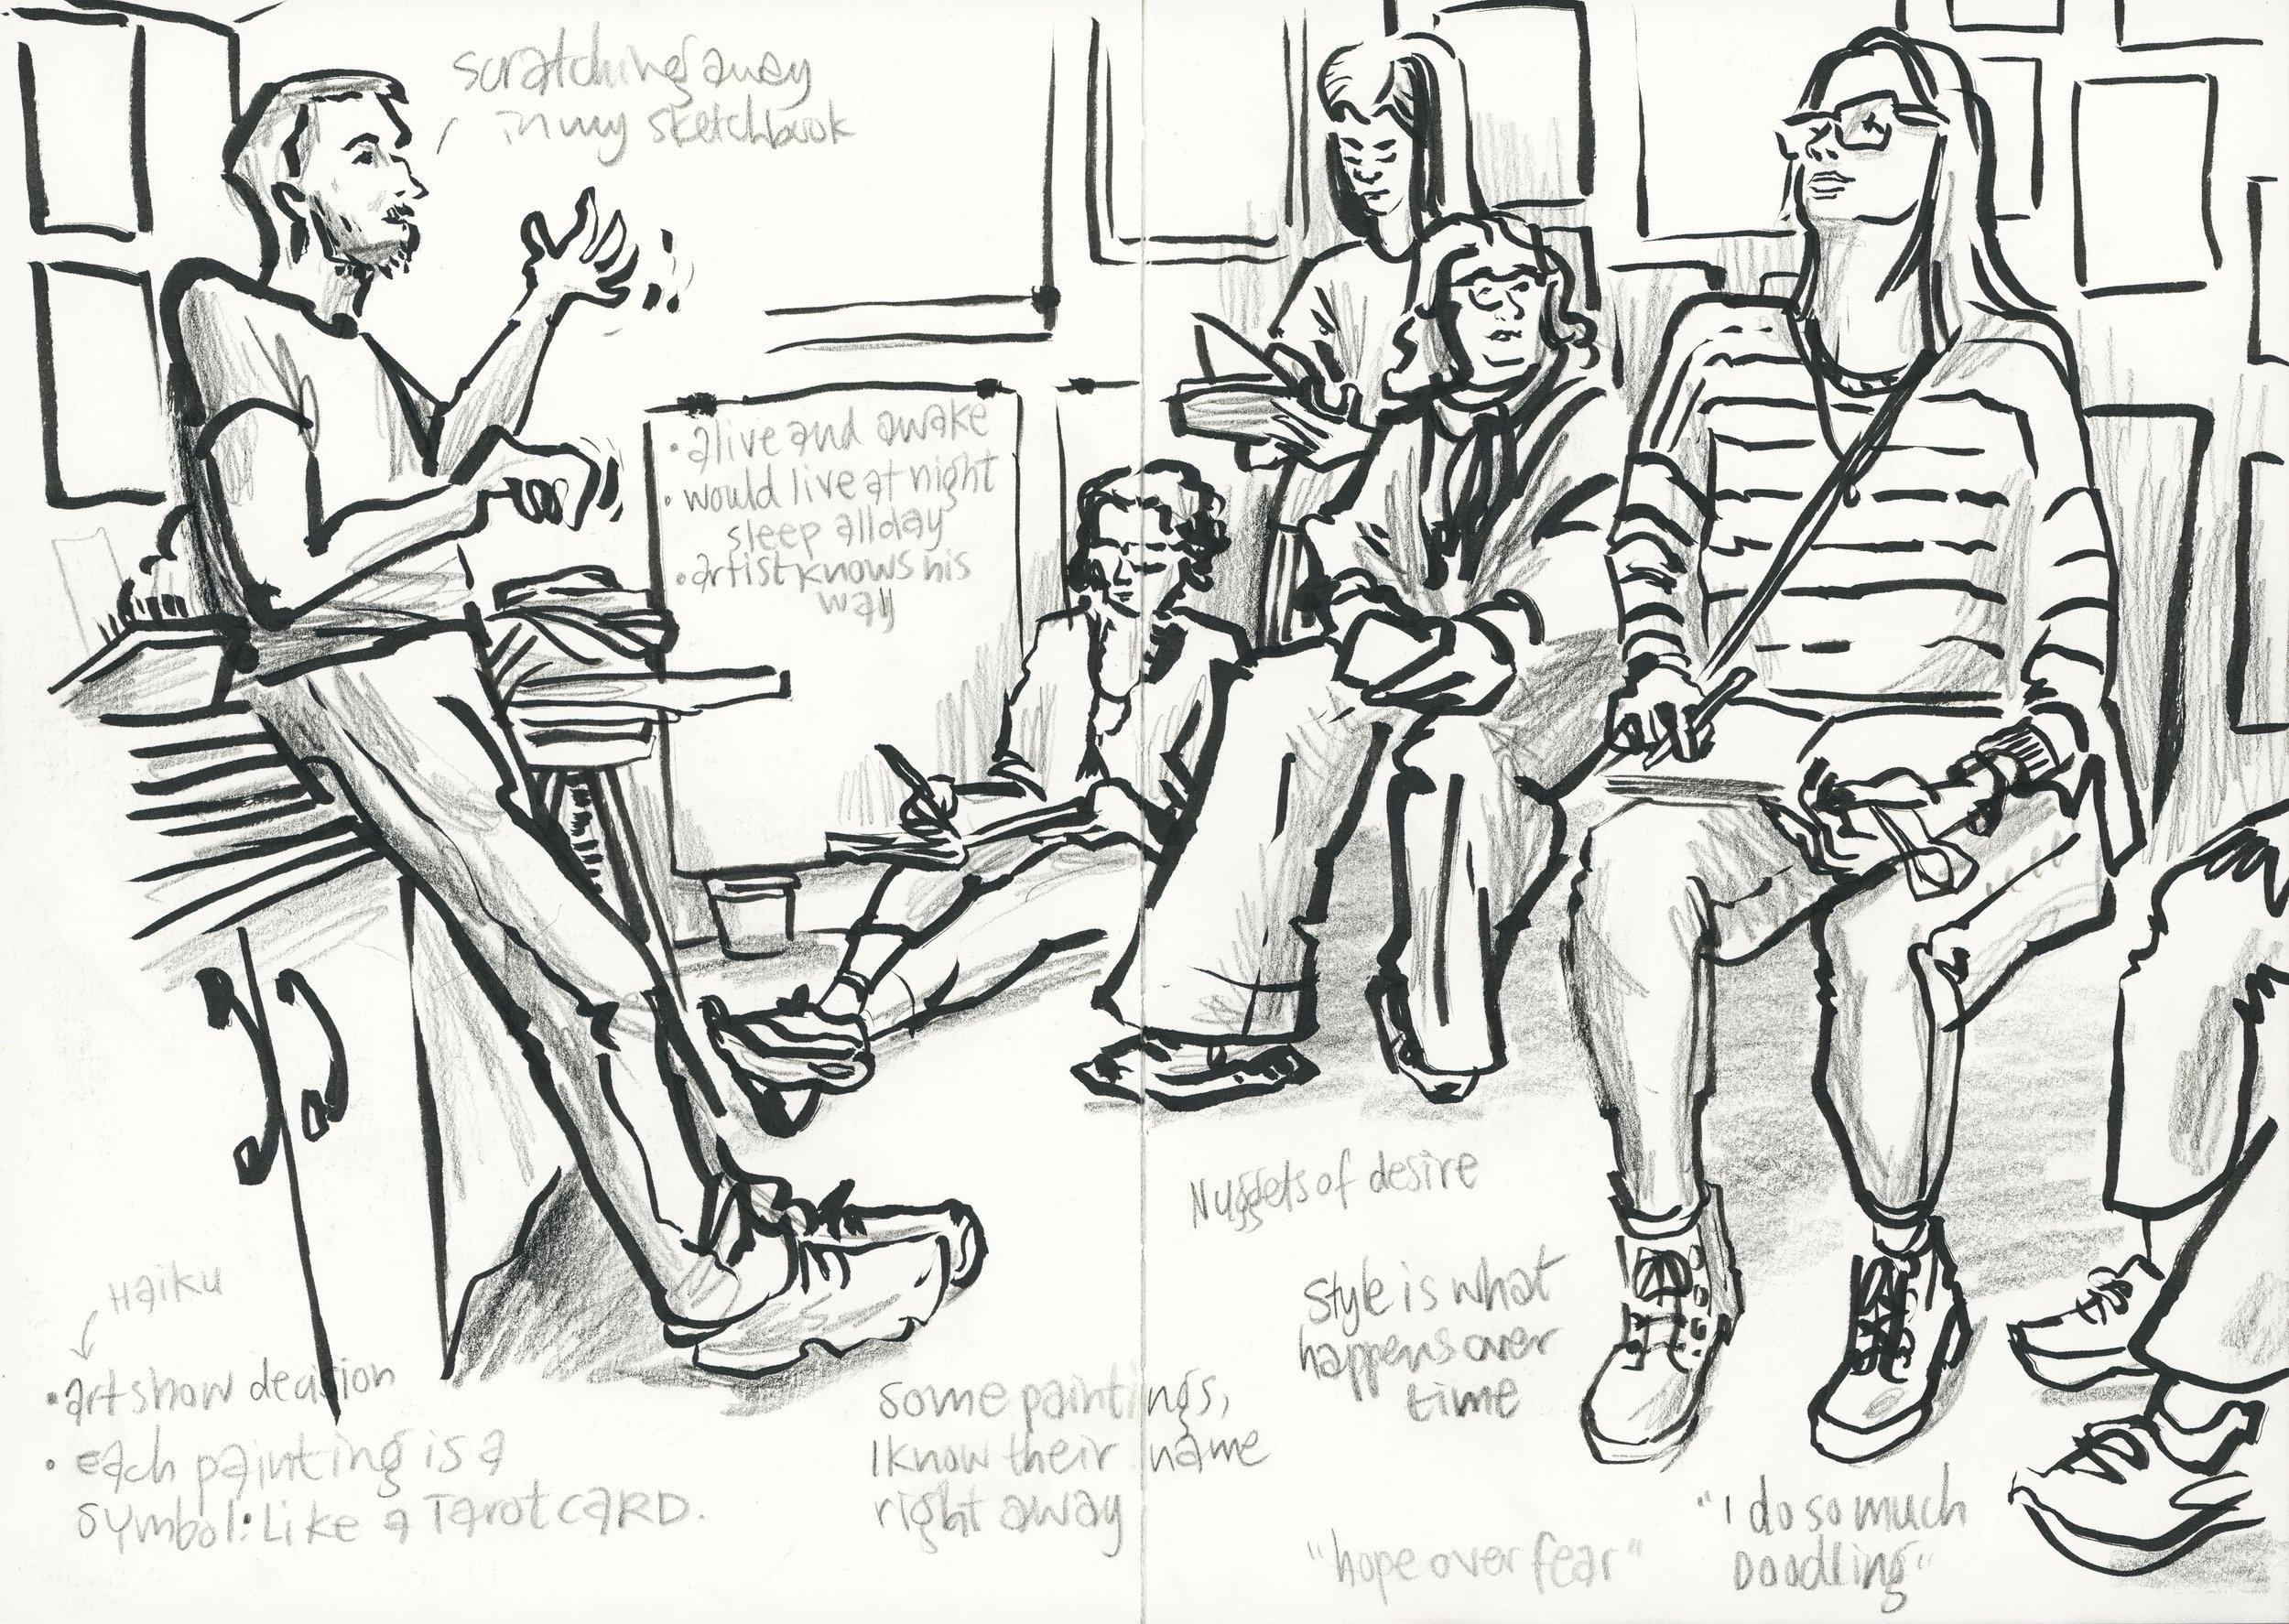 scratching away
in my sketchbook
• alive and awake
• would live at night
sleep all day
• artist knows his
way
Nuggets of desire
Haiku
• art show decision
• each painting is a
symbol: Like a Tarot CARD.
Some paintings,
I know their name
right away
Style is what
happens over
time
"hope over fear"
"I do so much
Doodling"